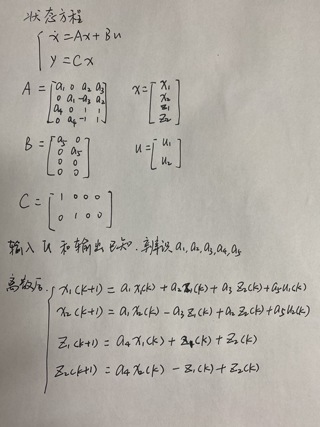 状态方程
ẋ = Ax + Bu
y = Cx
A = [a₁ 0 a₂ a₃ x = [x₁
0 a₁ -a₃ a₂ x₂
a₄ 0 1 1 z₁
0 a₄ -1 1] z₂]
B = [a₅ 0 u = [u₁
0 a₅ u₂]
0 0
0 0]
C = [1 0 0 0
0 1 0 0]
输入u和输出已知. 辨识a₁,a₂,a₃,a₄,a₅
离散后
x₁(k+1) = a₁x₁(k) + a₂z₁(k) + a₃z₂(k) + a₅u₁(k)
x₂(k+1) = a₁x₂(k) - a₃z₁(k) + a₂z₂(k) + a₅u₂(k)
z₁(k+1) = a₄x₁(k) + z₁(k) + z₂(k)
z₂(k+1) = a₄x₂(k) - z₁(k) + z₂(k)